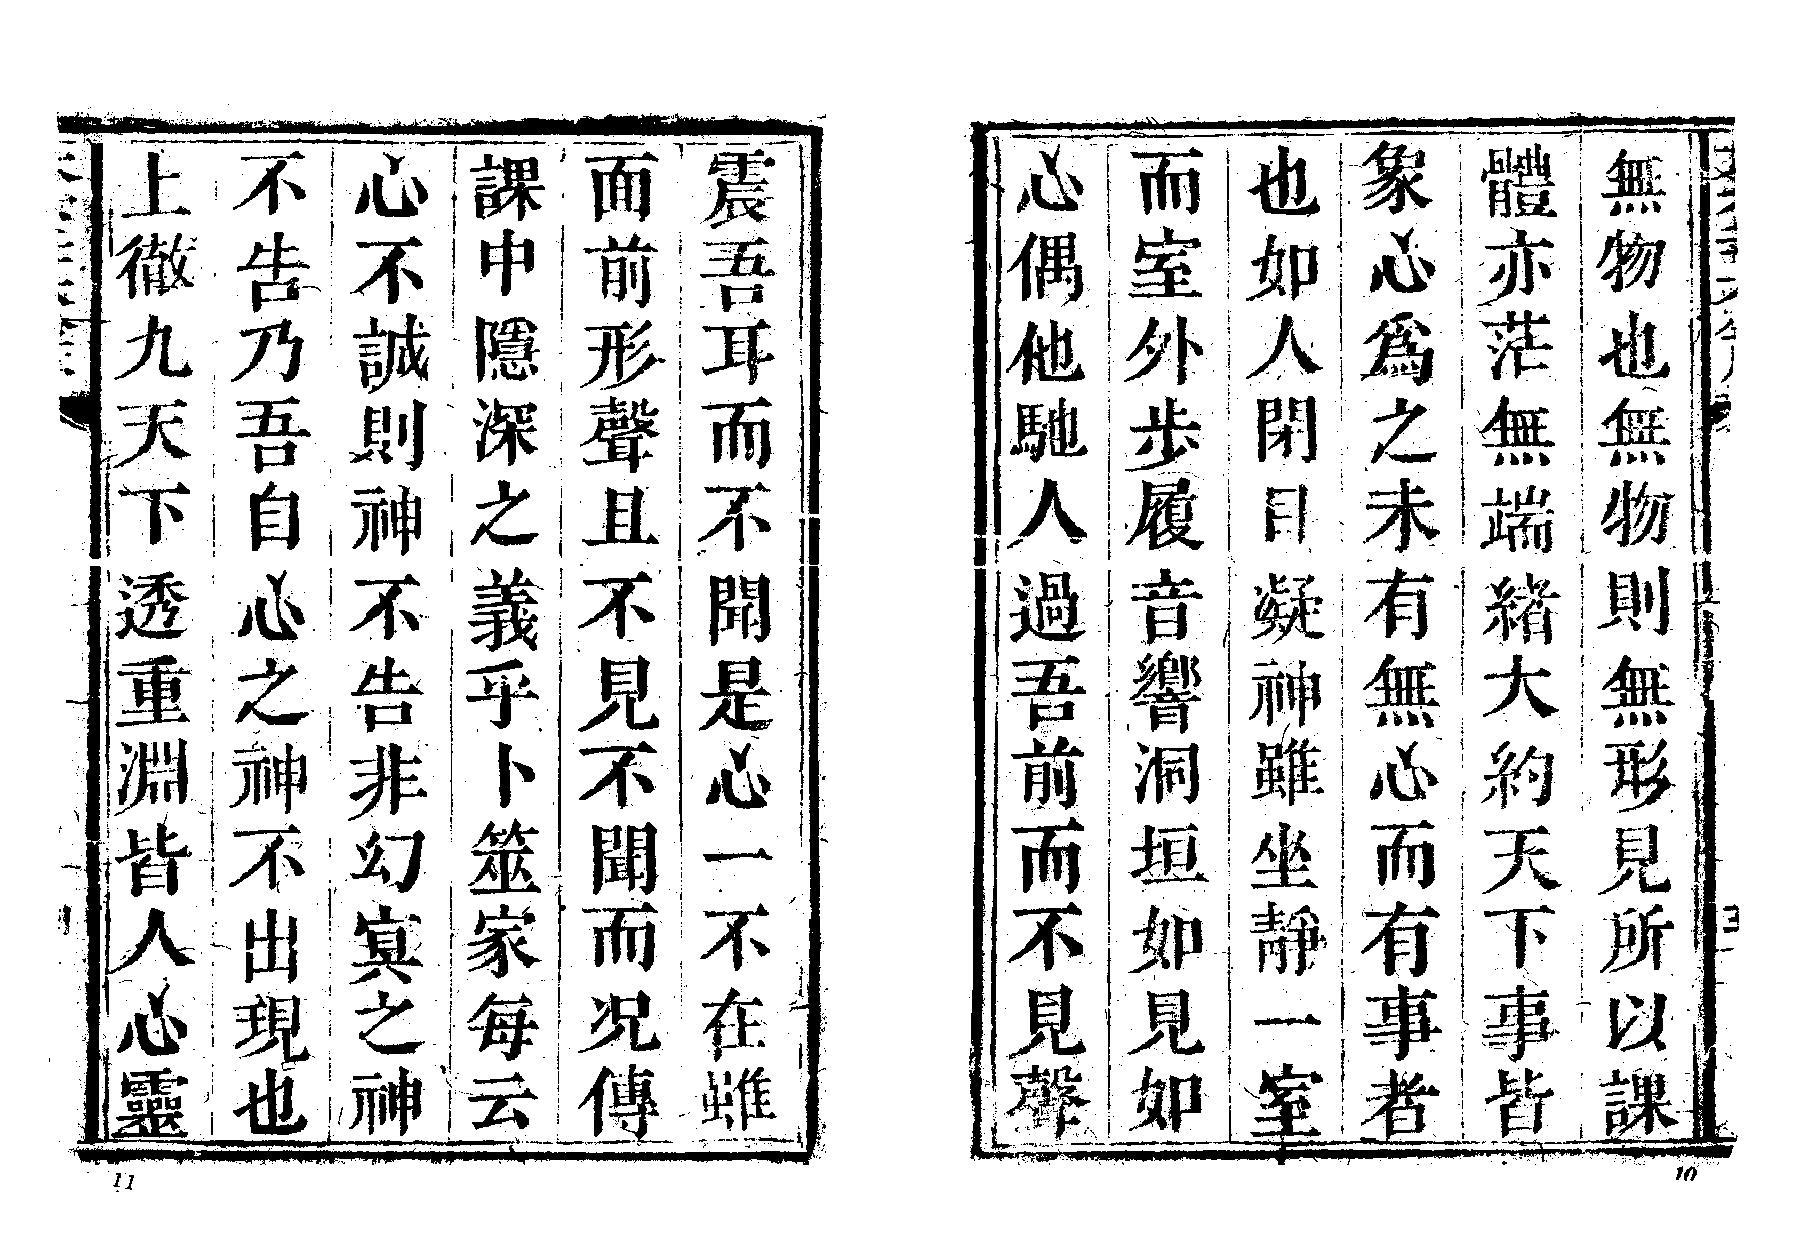 無物也無物則無形見所以課
體亦茫無端緒大約天下事皆
象心為之未有無心而有事者
也如人閉目凝神雖坐靜一室
而室外步履音響洞垣如見如
心偶他馳人過吾前而不見聲
10
震吾耳而不聞是心一不在雖
面前形聲且不見不聞而況傳
課中隱深之義乎卜筮家每云
心不誠則神不告非幻冥之神
不告乃吾自心之神不出現也
上徹九天下透重淵皆人心靈
11